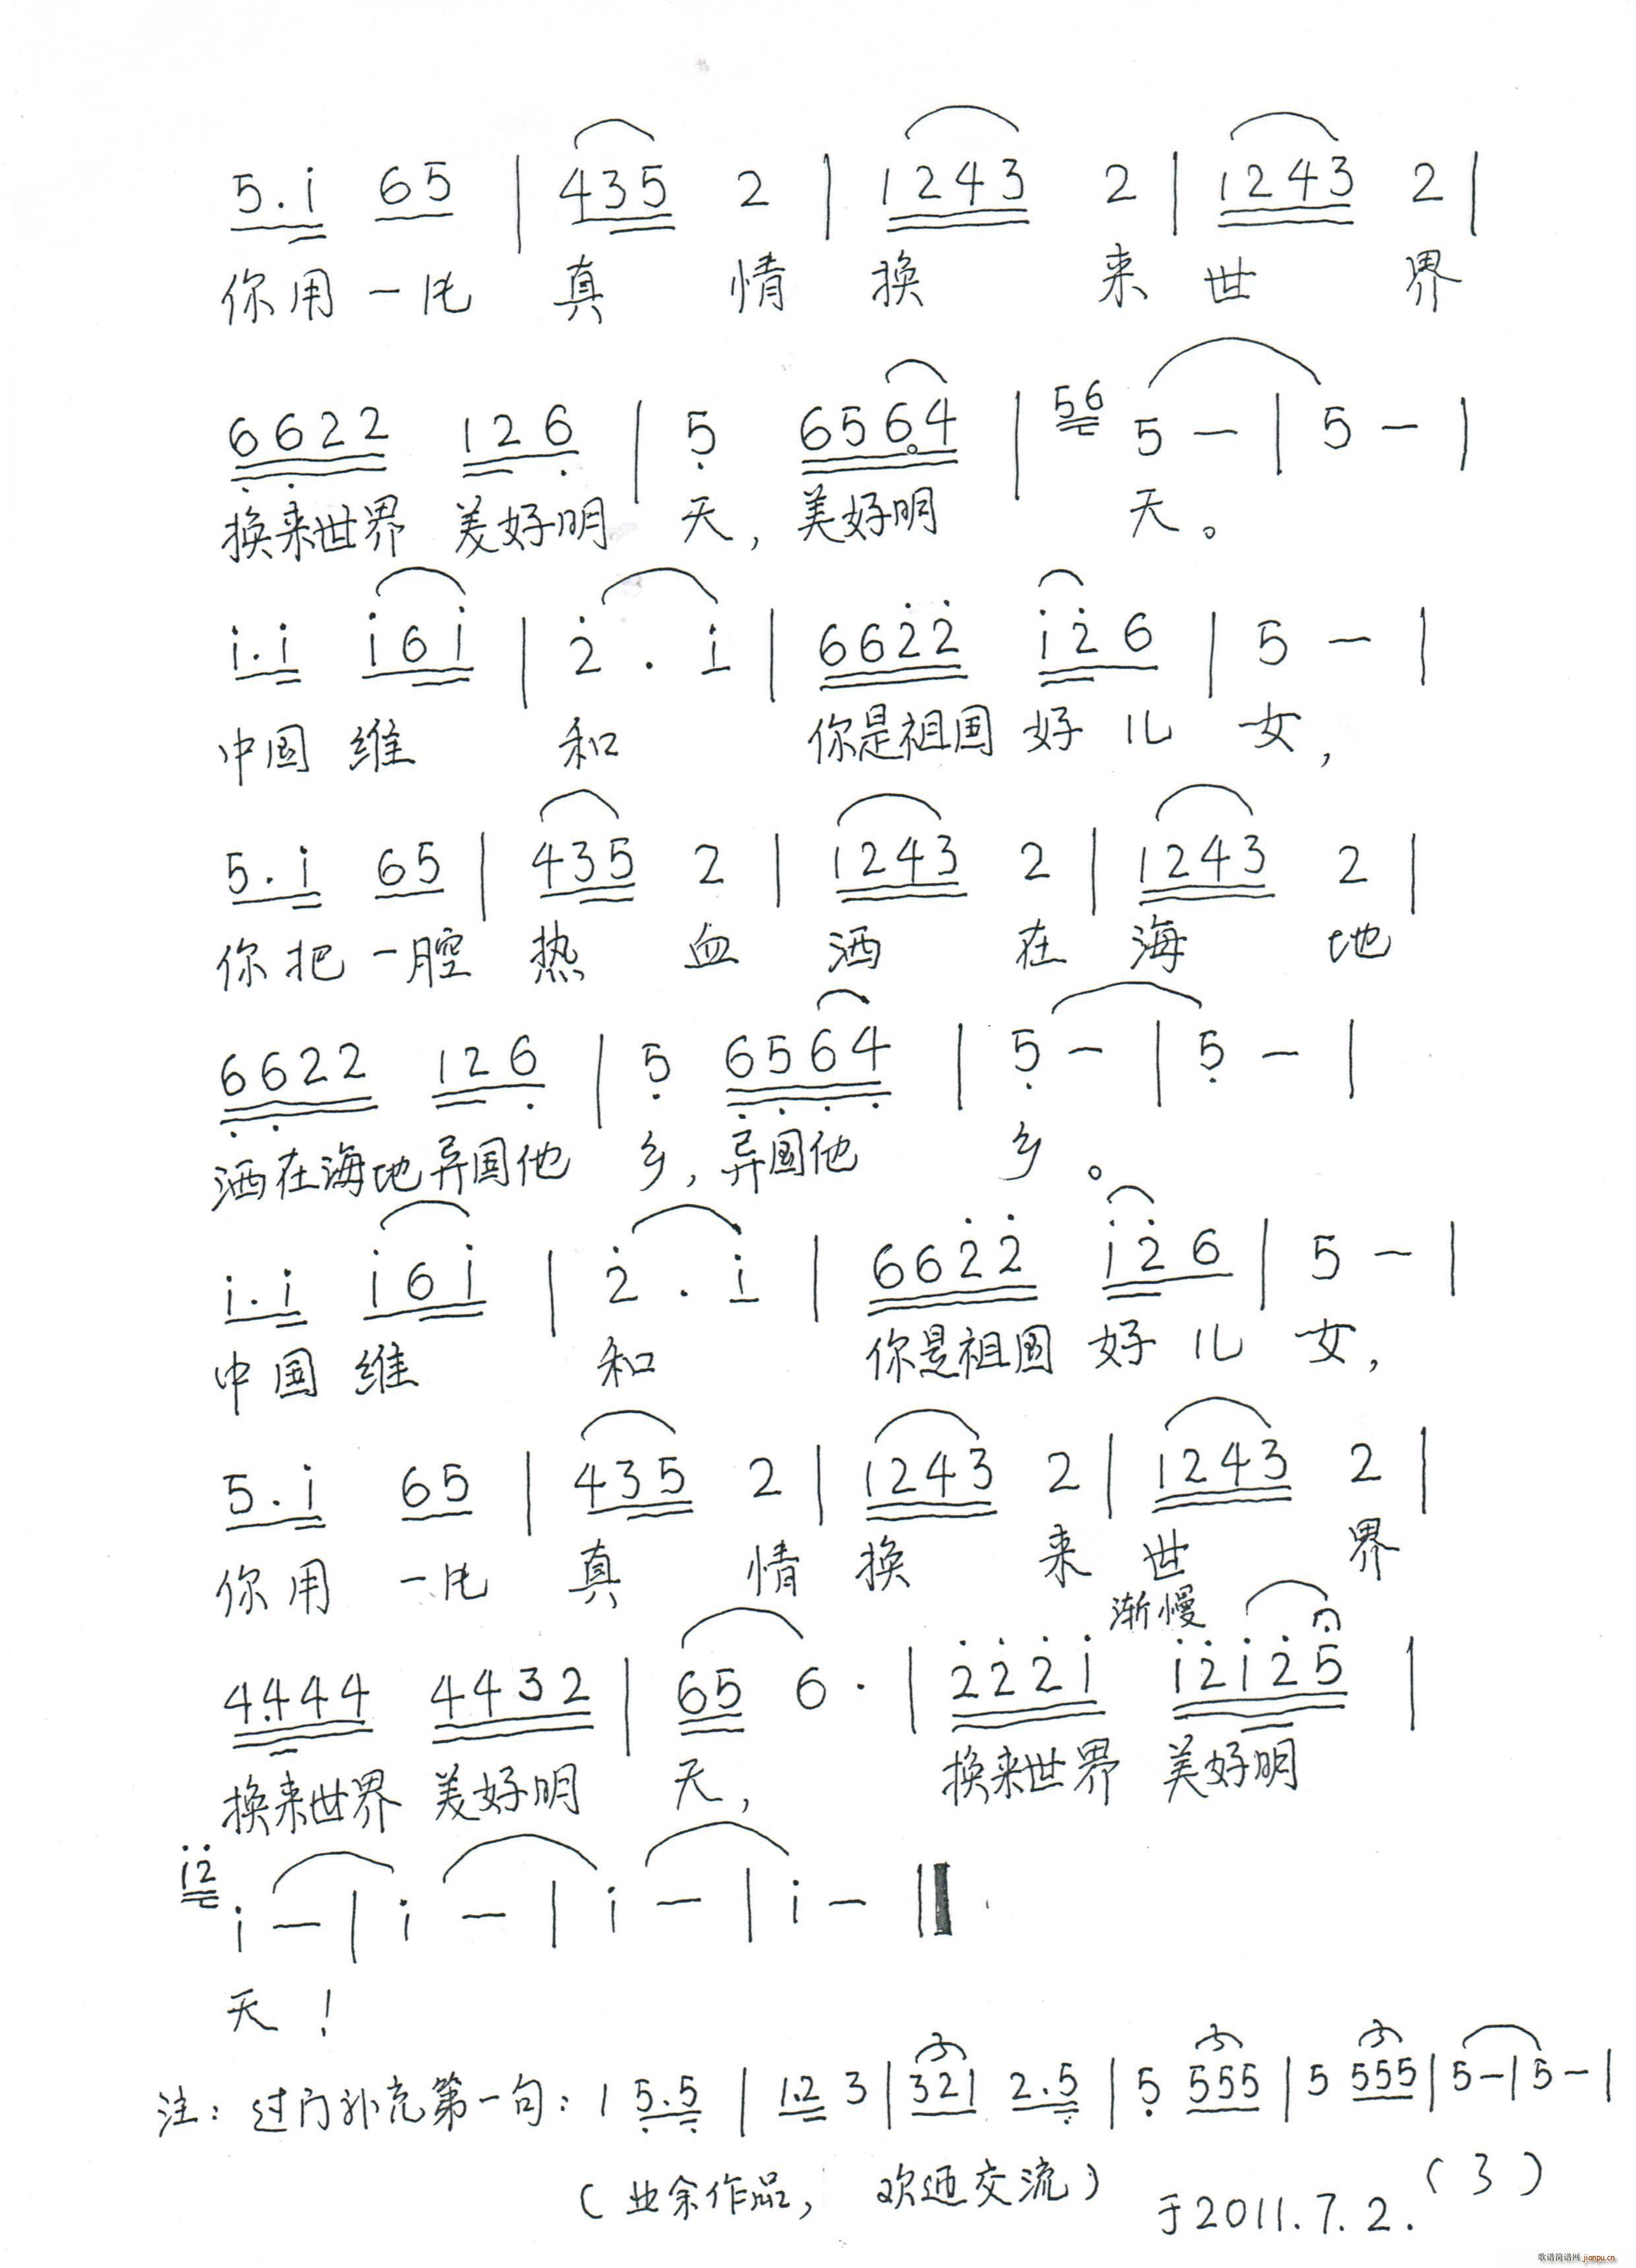 5.i 65 | 435 2 | 1243 2 | 1243 2 |
你用一片 真 情 换 来 世 界
6622 126 | 5 6564 | 56 5 — | 5 — |
换来世界 美好明 天，美好明 天。
i.i i6i | 2 . i | 6622 i26 | 5 — |
中国 维 和 你是祖国 好 儿 女，
5.i 65 | 435 2 | 1243 2 | 1243 2 |
你 把 一腔 热 血 洒 在 海 地
6622 126 | 5 6564 | 5 — | 5 — |
洒在海地异国他 乡，异国他 乡。
i.i i6i | 2 . i | 6622 i26 | 5 — |
中国 维 和 你是祖国 好 儿 女，
5.i 65 | 435 2 | 1243 2 | 1243 2 |
你用 一片 真 情 换 来 世 界
渐慢
4.444 4432 | 65 6. | 222i i2i25 |
换来世界 美好明 天， 换来世界 美好明
i2 i — | i — | i — | i — ‖
天！
注：过门补充第一句：1 5.5 | 1.2 3 | 321 2.5 | 5 555 | 5 555 | 5 — | 5 — |
（业余作品， 欢迎交流） 于2011.7.2. （3）
歌谱简谱网 jianpu.cn